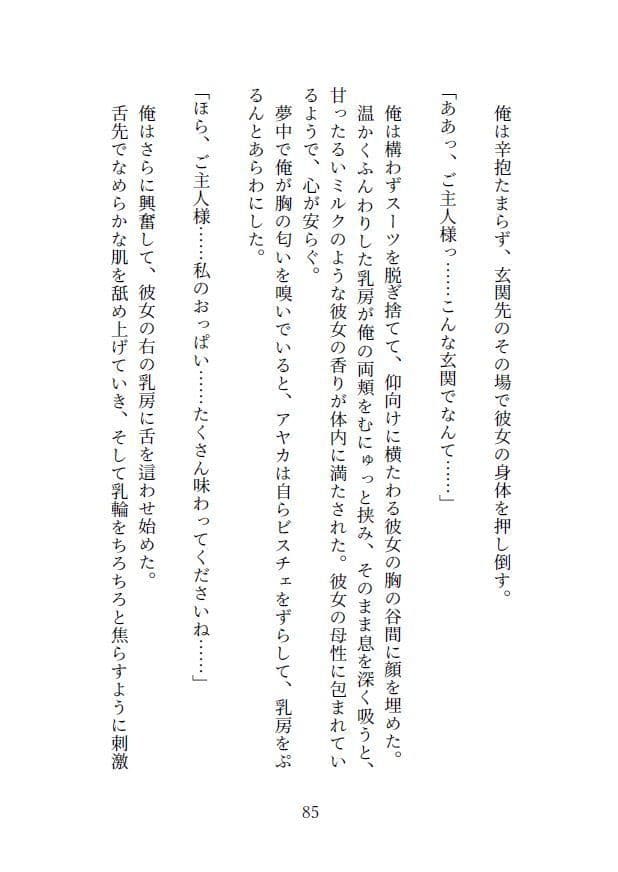 俺は辛抱たまらず、玄関先のその場で彼女の身体を押し倒す。
「ああっ、ご主人様っ……こんな玄関でなんて……」
俺は構わずスーツを脱ぎ捨てて、仰向けに横たわる彼女の胸の谷間に顔を埋めた。
温かくふんわりした乳房が俺の両頬をむにゅっと挟み、そのまま息を深く吸うと、
甘ったるいミルクのような彼女の香りが体内に満たされた。彼女の母性に包まれてい
るようで、心が安らぐ。
夢中で俺が胸の匂いを嗅いでいると、アヤカは自らビスチェをずらして、乳房をぷ
るんとあらわにした。
「ほら、ご主人様……私のおっぱい……たくさん味わってくださいね……」
俺はさらに興奮して、彼女の右の乳房に舌を這わせ始めた。
舌先でなめらかな肌を舐め上げていき、そして乳輪をちろちろと焦らすように刺激
85